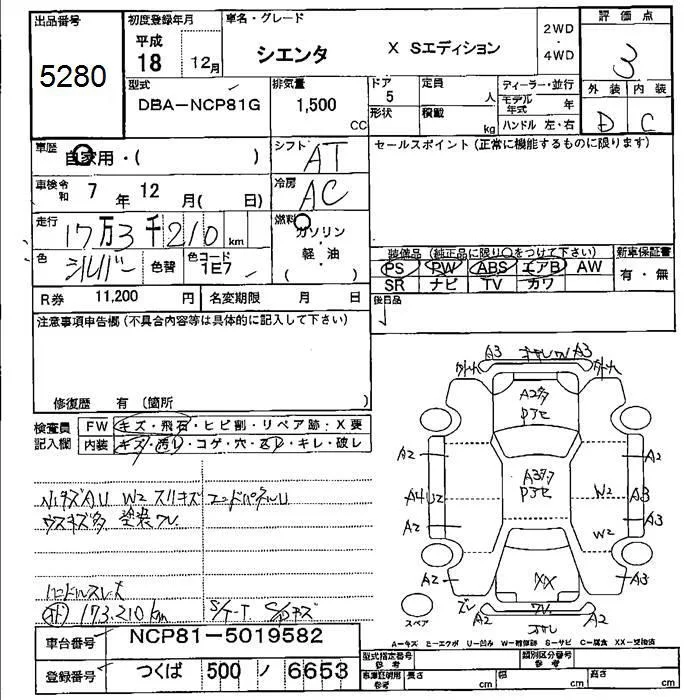 出品番号
5280
初度登録年月
平成
18 12月
車名・グレード
シエンタ X Sエディション
2WD
・
4WD
評価点
3
型式
DBA-NCP81G
排気量
1,500
CC
ドア
5
形状
定員
人
積載
kg
ディーラー・並行
モデル年式 年
ハンドル 左・右
外装 内装
D C
車歴
自家用・( )
シフト
AT
車検 令和 7年 12月( 日)
冷房
AC
走行
17万3千210km
燃料
ガソリン
・
軽・油
( )
色
シルバー
色替
色コード
1E7
R券 11,200 円
名変期限 月 日
セールスポイント(正常に機能するものに限ります)
装備品(純正品に限り○をつけて下さい)
PS PW ABS エアB AW
SR ナビ TV カワ
新車保証書
有・無
後日品
注意事項申告欄(不具合内容等は具体的に記入して下さい)
修復歴 有(箇所 )
検査員
記入欄
FW キズ・飛石・ヒビ割・リペア跡・X要
内装 キズ・汚れ・コゲ・穴・・キレ・破レ
W2 スリキズ エンドパネルU
ウスキズ多 塗装ワレ
ハンドルスレ大
173,210km
S/T-T
車台番号 NCP81-5019582
登録番号 つくば 500 ノ 6653
A3 A3
A2多
A3多
A2 A2
A4U2 W2 A3
A2 W2 A3
A2 A2
XX
A2 A2
スペア
A-キズ E-エクボ U-凹み W-補修跡 S-サビ C-腐食 XX-交換済
型式指定番号
参考
類別区分番号
参考
車庫証明用
参考
長さ cm
幅 cm
高さ cm